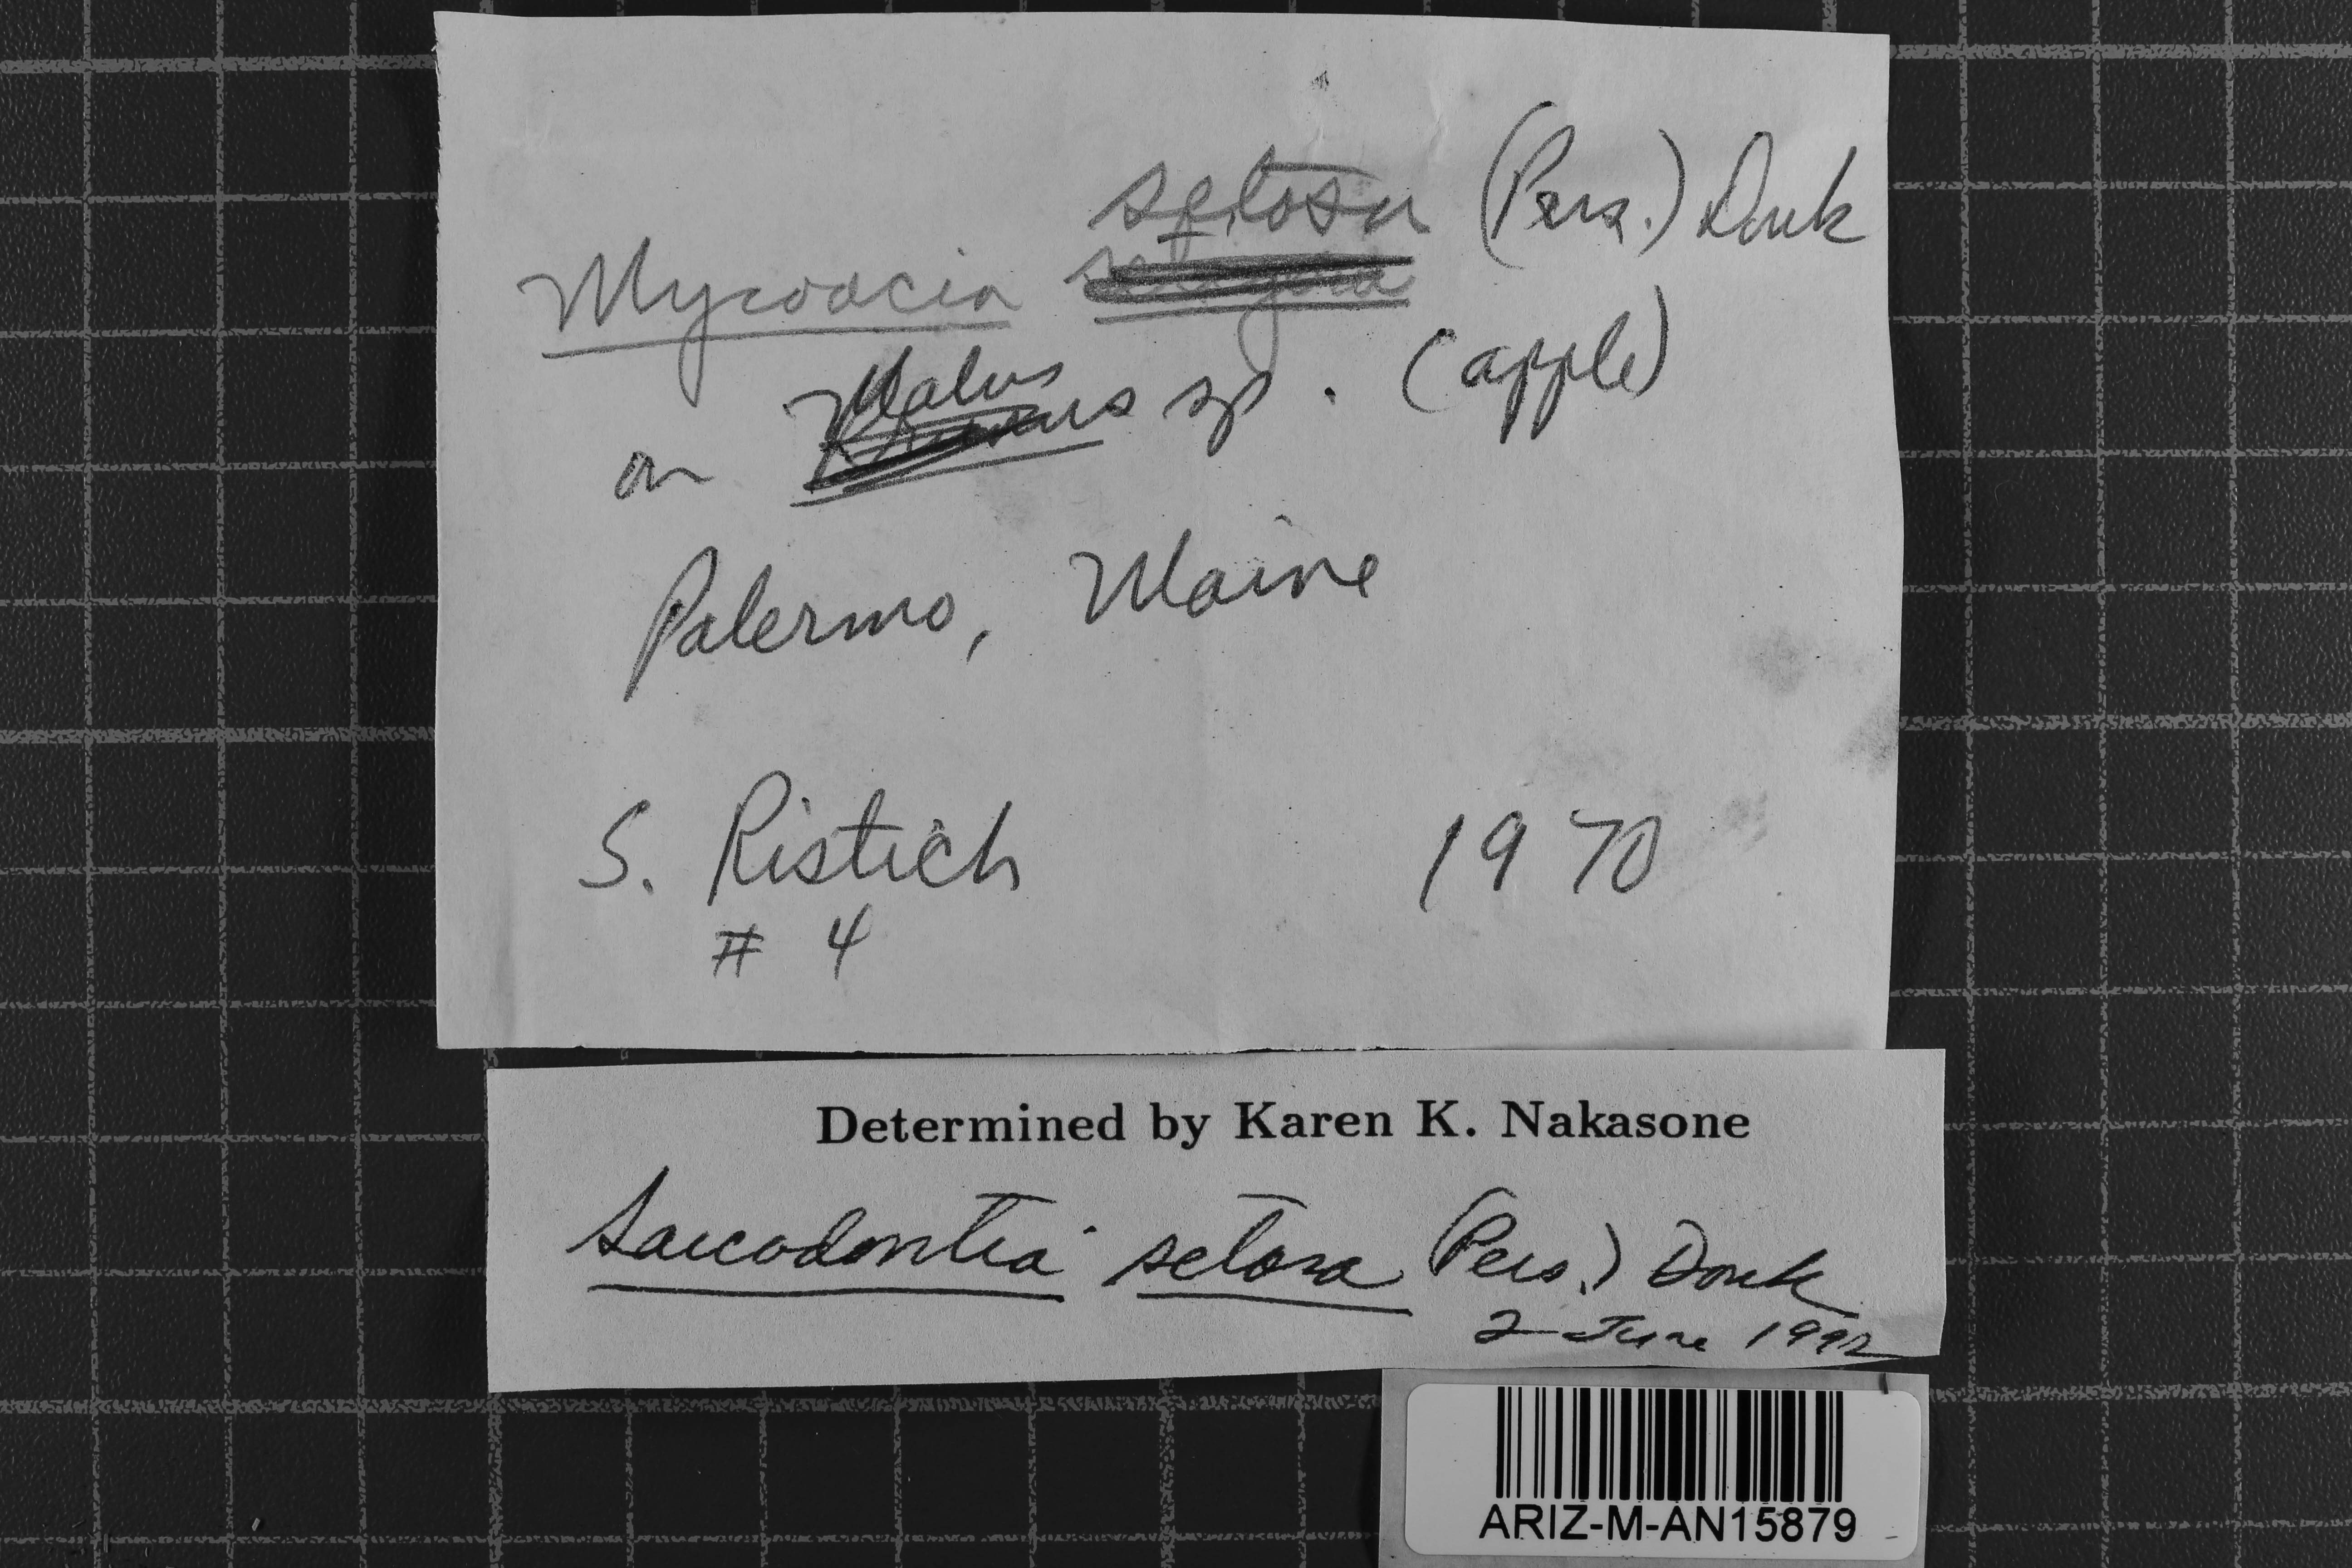 Mycoacia setosa (Pers.) Donk
on Malus sp. (apple)
Palermo, Maine
S. Ristich 1970
# 4
Determined by Karen K. Nakasone
Sarcodontia setosa (Pers.) Donk
2 June 1992
ARIZ-M-AN15879